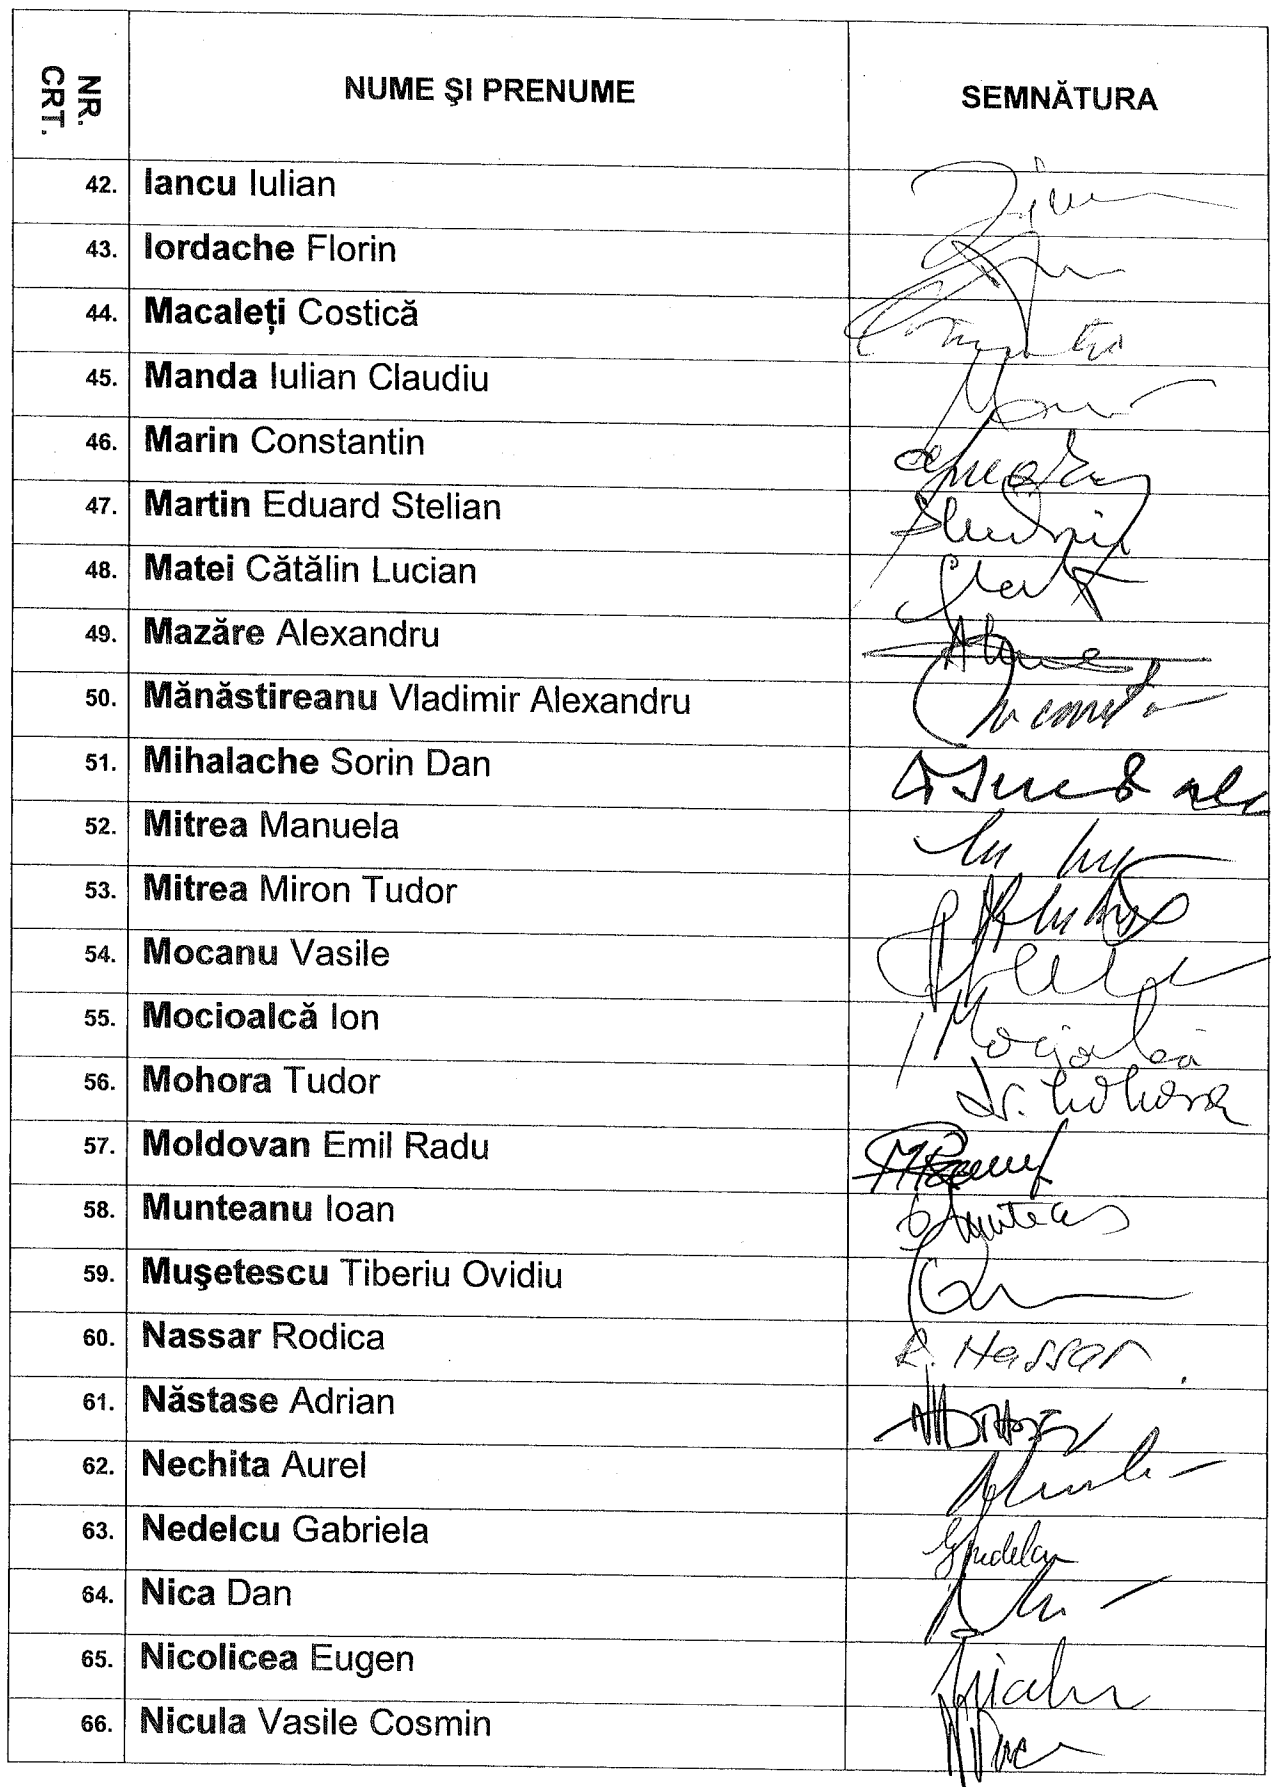 NR. CRT. NUME ŞI PRENUME SEMNĂTURA
42. Iancu Iulian
43. Iordache Florin
44. Macaleți Costică
45. Manda Iulian Claudiu
46. Marin Constantin
47. Martin Eduard Stelian
48. Matei Cătălin Lucian
49. Mazăre Alexandru
50. Mănăstireanu Vladimir Alexandru
51. Mihalache Sorin Dan
52. Mitrea Manuela
53. Mitrea Miron Tudor
54. Mocanu Vasile
55. Mocioalcă Ion Mocioalcă
56. Mohora Tudor
57. Moldovan Emil Radu
58. Munteanu Ioan
59. Muşetescu Tiberiu Ovidiu
60. Nassar Rodica R. Nassar
61. Năstase Adrian
62. Nechita Aurel
63. Nedelcu Gabriela
64. Nica Dan
65. Nicolicea Eugen
66. Nicula Vasile Cosmin